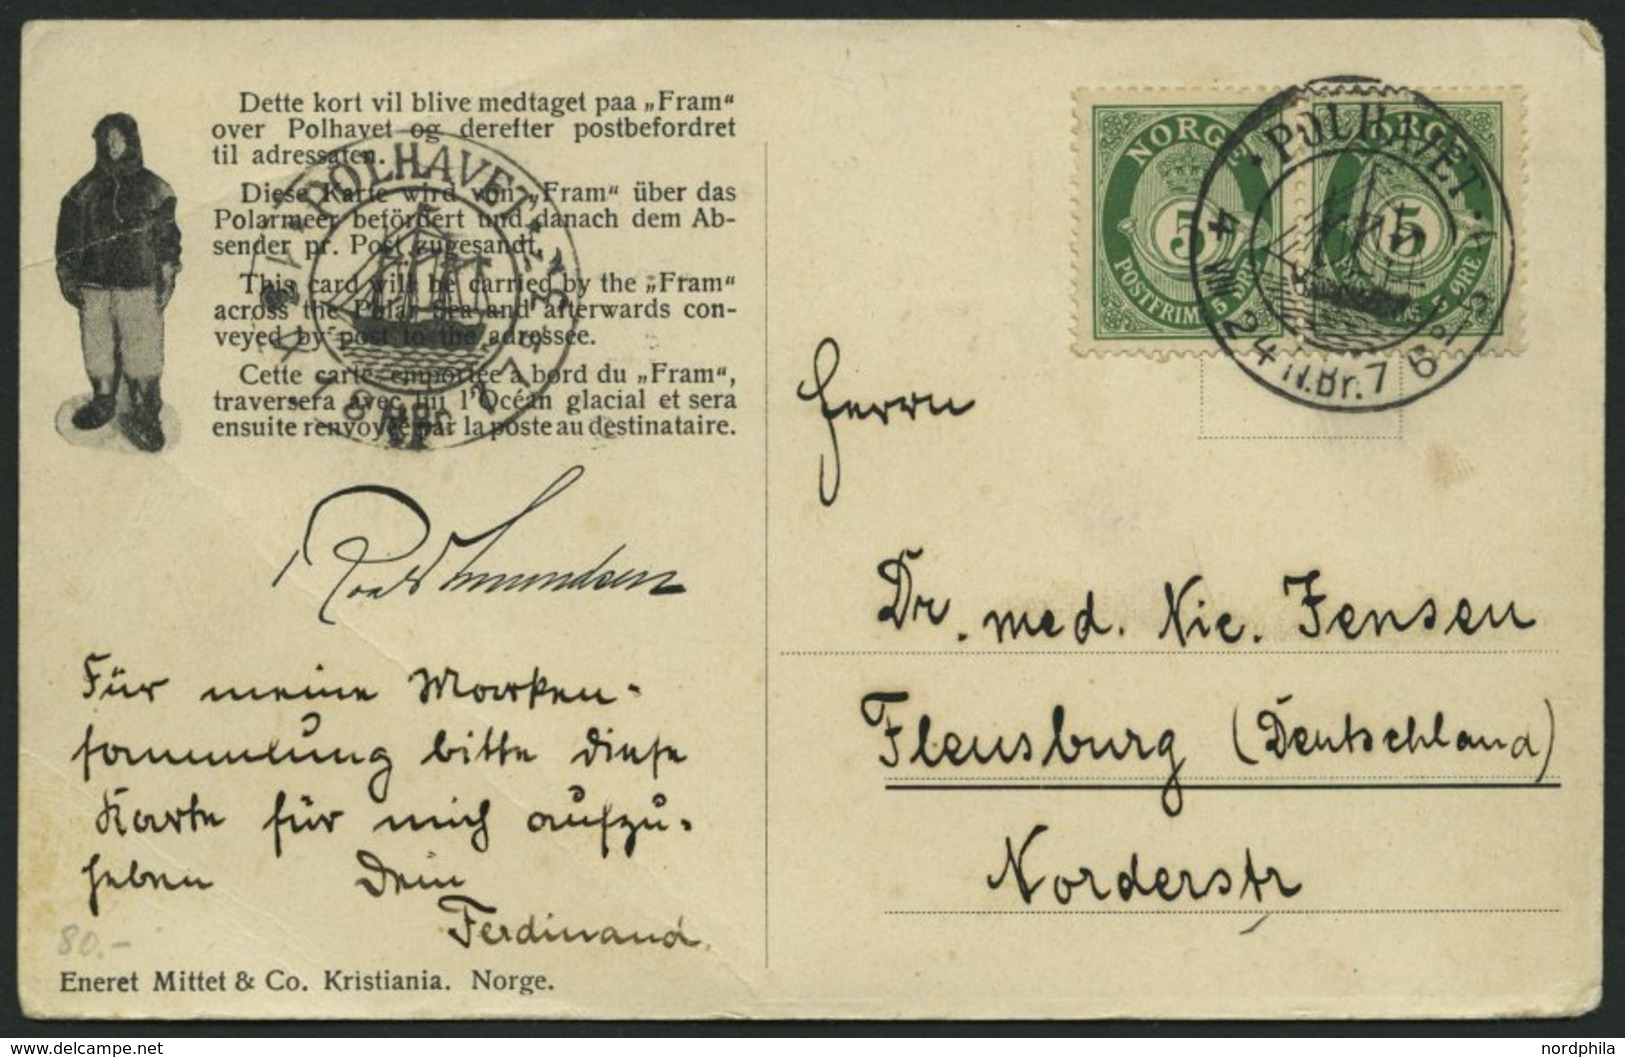 Dette kort vil blive medtaget paa „Fram“
over Polhavet og derefter postbefordret
til adressaten.
Diese Karte wird von „Fram“ über das
Polarmeer befördert und danach dem Ab-
sender pr. Post zugesandt.
This card will be carried by the „Fram“
across the Polar Sea and afterwards con-
veyed by post to the adressee.
Cette carte, emportée à bord du „Fram“,
traversera avec lui l'Océan glacial et sera
ensuite renvoyée par la poste au destinataire.
POLHAVET
Roald Amundsen
Für meine Marken-
sammlung bitte diese
Karte für mich aufzu-
heben Dein
Ferdinand
80.-
Eneret Mittet & Co. Kristiania. Norge.
NORGE NORGE
5 5
POSTFRIM. 5 ØRE
POLHAVET
4 VII 24 N.Br. 7
Herrn
Dr. med. Nic. Jensen
Flensburg (Deutschland)
Norderstr
delcampe.net
nordphila